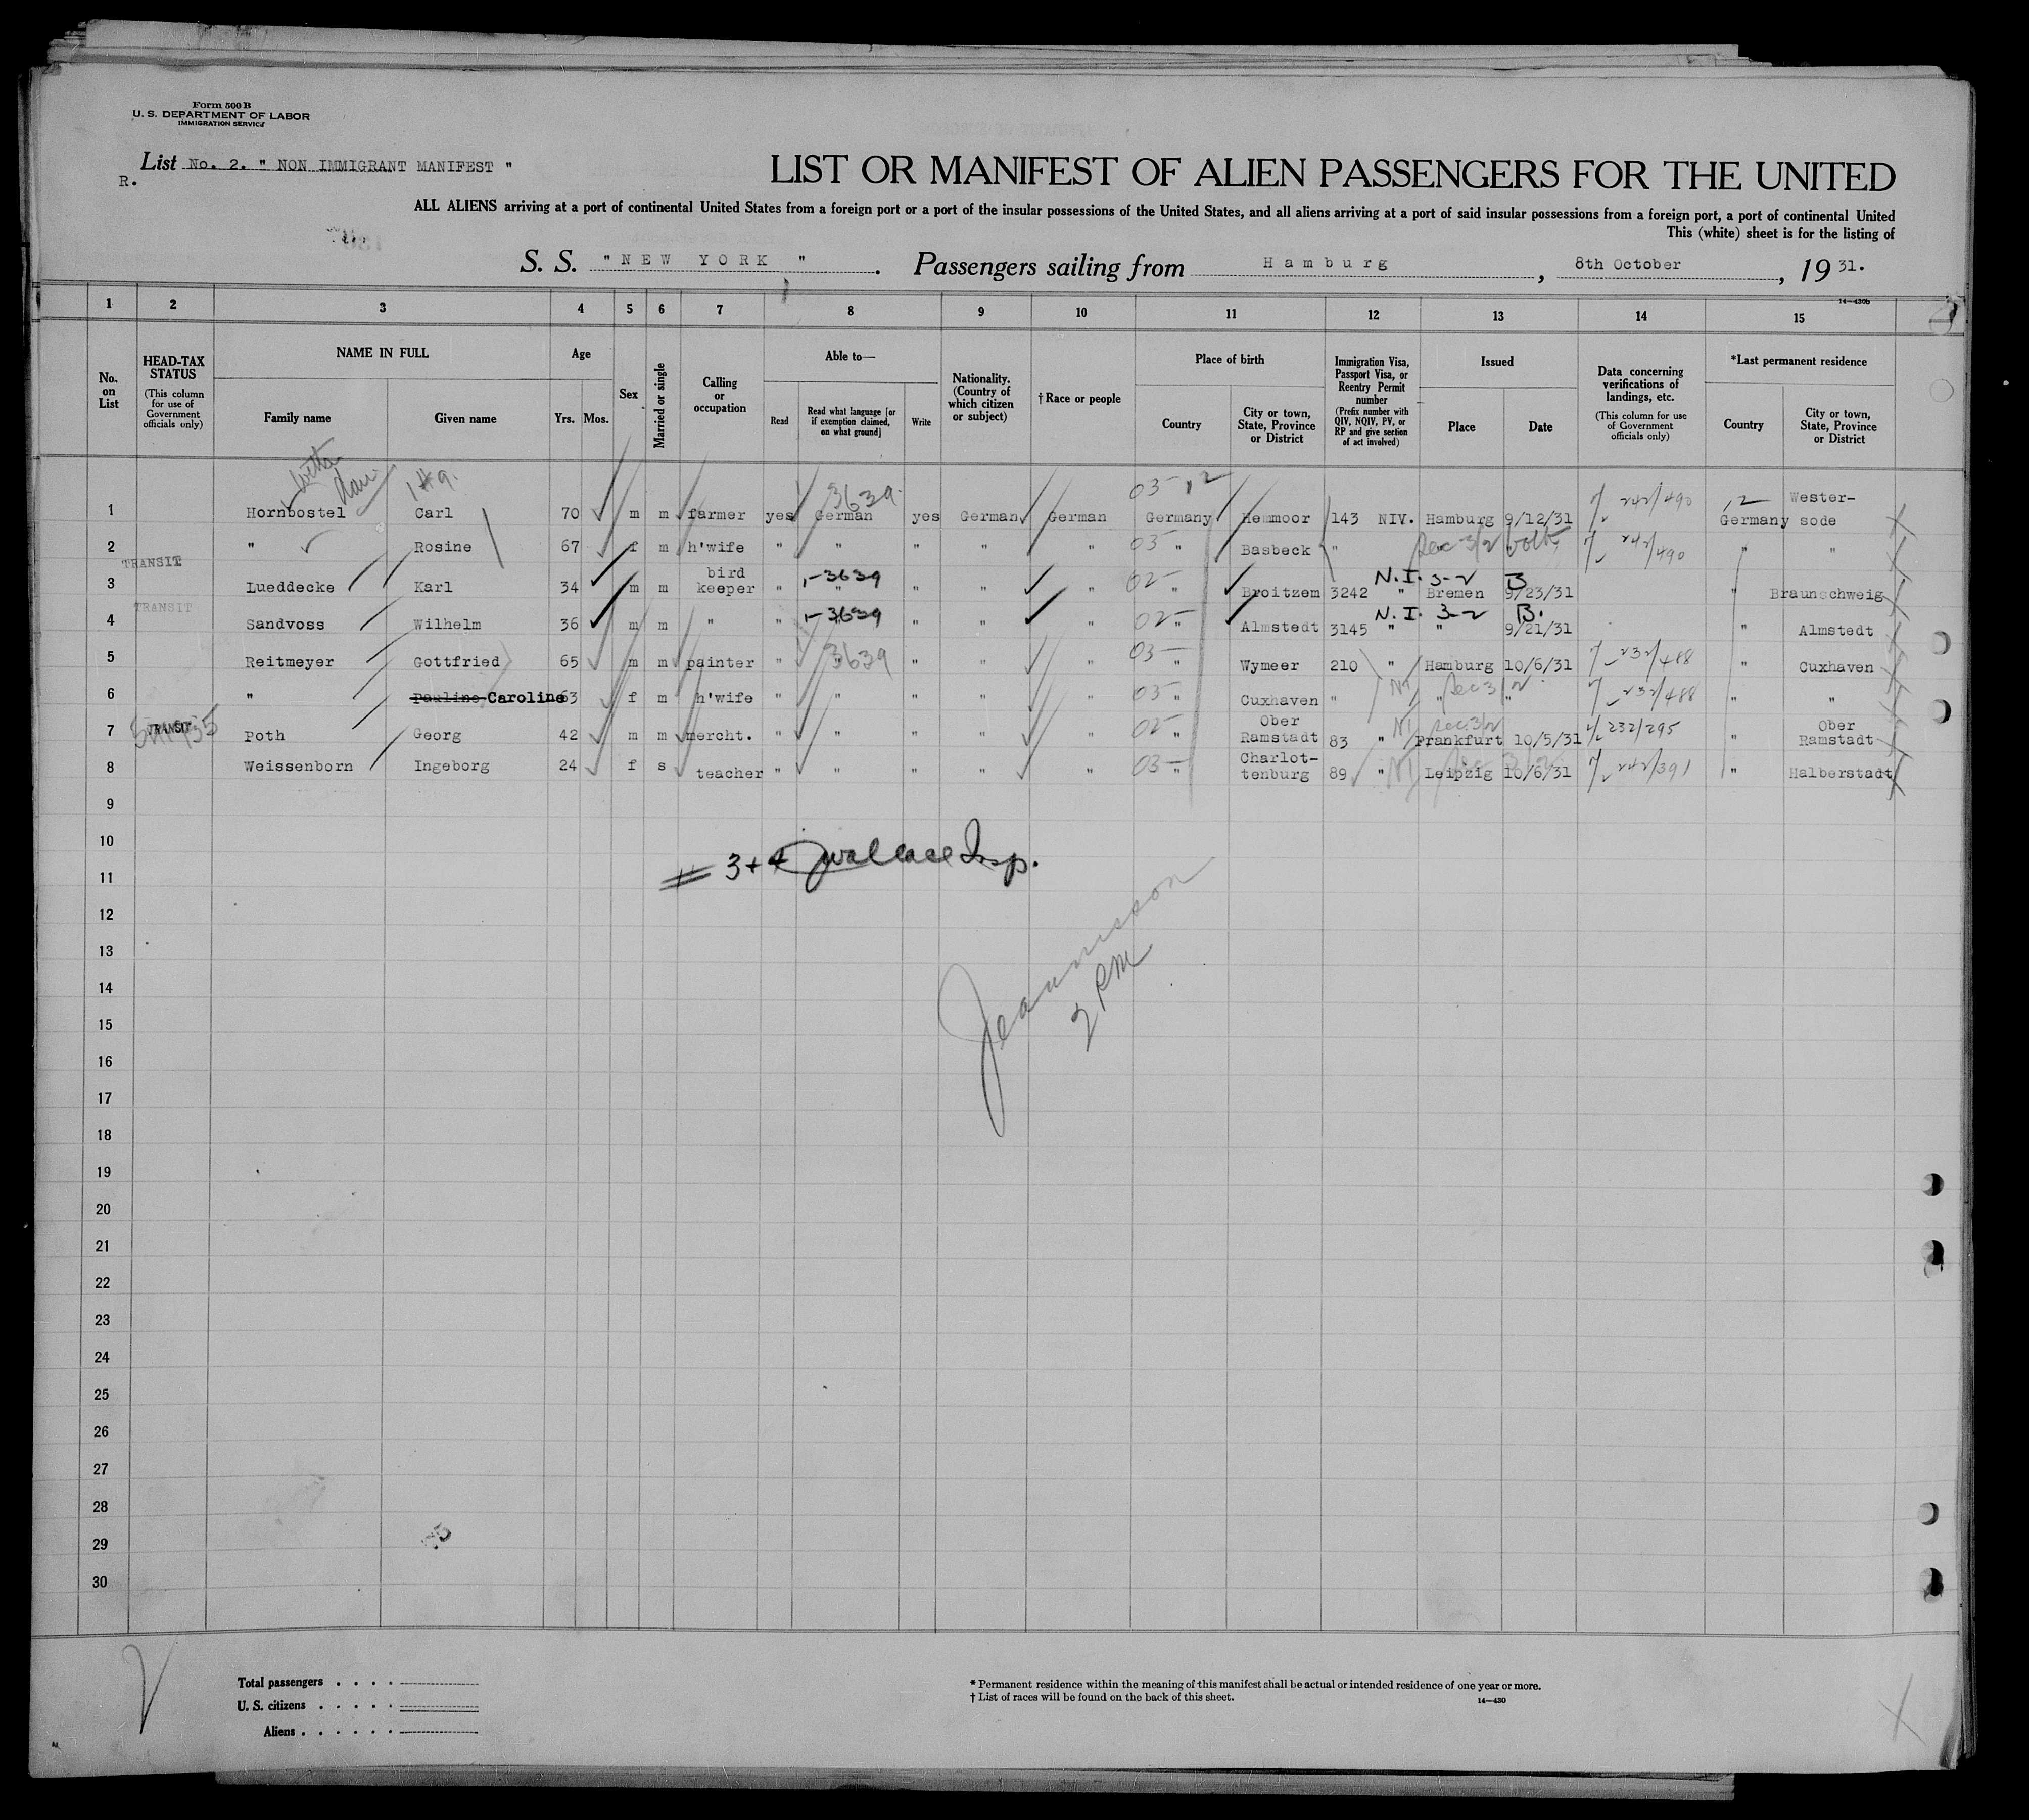 Form 500 B
U. S. DEPARTMENT OF LABOR
IMMIGRATION SERVICE
List No. 2. " NON IMMIGRANT MANIFEST "
R.
LIST OR MANIFEST OF ALIEN PASSENGERS FOR THE UNITED
ALL ALIENS arriving at a port of continental United States from a foreign port or a port of the insular possessions of the United States, and all aliens arriving at a port of said insular possessions from a foreign port, a port of continental United
This (white) sheet is for the listing of
S. S. " NEW YORK " . Passengers sailing from Hamburg , 8th October , 19 31.
14—430b
1 2 3 4 5 6 7 8 9 10 11 12 13 14 15
No. on List
HEAD-TAX STATUS (This column for use of Government officials only)
NAME IN FULL
Family name Given name
Age
Yrs. Mos.
Sex
Married or single
Calling or occupation
Able to—
Read Read what language [or if exemption claimed, on what ground] Write
Nationality. (Country of which citizen or subject)
† Race or people
Place of birth
Country City or town, State, Province or District
Immigration Visa, Passport Visa, or Reentry Permit number (Prefix number with QIV, NQIV, PV, or RP and give section of act involved)
Issued
Place Date
Data concerning verifications of landings, etc. (This column for use of Government officials only)
*Last permanent residence
Country City or town, State, Province or District
3639 03 12 242/490 12
1 Hornbostel Carl 70 m m farmer yes German yes German German Germany Hemmoor 143 NIV. Hamburg 9/12/31 Germany Wester- sode
2 " Rosine 67 f m h'wife " " " " " 03 " Basbeck " Sec 3/2 both 242/490 " "
TRANSIT
3 Lueddecke Karl 34 m m bird keeper " 1-3639 " " " " 02 " Broitzem 3242 " N.I. 3-2 B Bremen 9/23/31 " Braunschweig
TRANSIT
4 Sandvoss Wilhelm 36 m m " " 1-3639 " " " " 02 " Almstedt 3145 " N.I. 3-2 B. " 9/21/31 " Almstedt
5 Reitmeyer Gottfried 65 m m painter " 3639 " " " " 03 " Wymeer 210 " Hamburg 10/6/31 232/488 " Cuxhaven
6 " Pauline Caroline 63 f m h'wife " " " " " 03 " Cuxhaven " NI " Sec 3/2 " 232/488 " "
TRANSIT
7 Poth Georg 42 m m mercht. " " " " " 02 " Ober Ramstadt 83 " NI Sec 3/2 Frankfurt 10/5/31 232/295 " Ober Ramstadt
8 Weissenborn Ingeborg 24 f s teacher " " " " " 03 " Charlot- tenburg 89 " NI Leipzig 10/6/31 242/391 " Halberstadt
9
10
# 3+4 Wallace Insp.
11
12
13
14
2 PM
15
16
17
18
19
20
21
22
23
24
25
26
27
28
29
30
Total passengers . . . .
U. S. citizens . . . . .
Aliens . . . . . .
* Permanent residence within the meaning of this manifest shall be actual or intended residence of one year or more.
† List of races will be found on the back of this sheet.
14—430